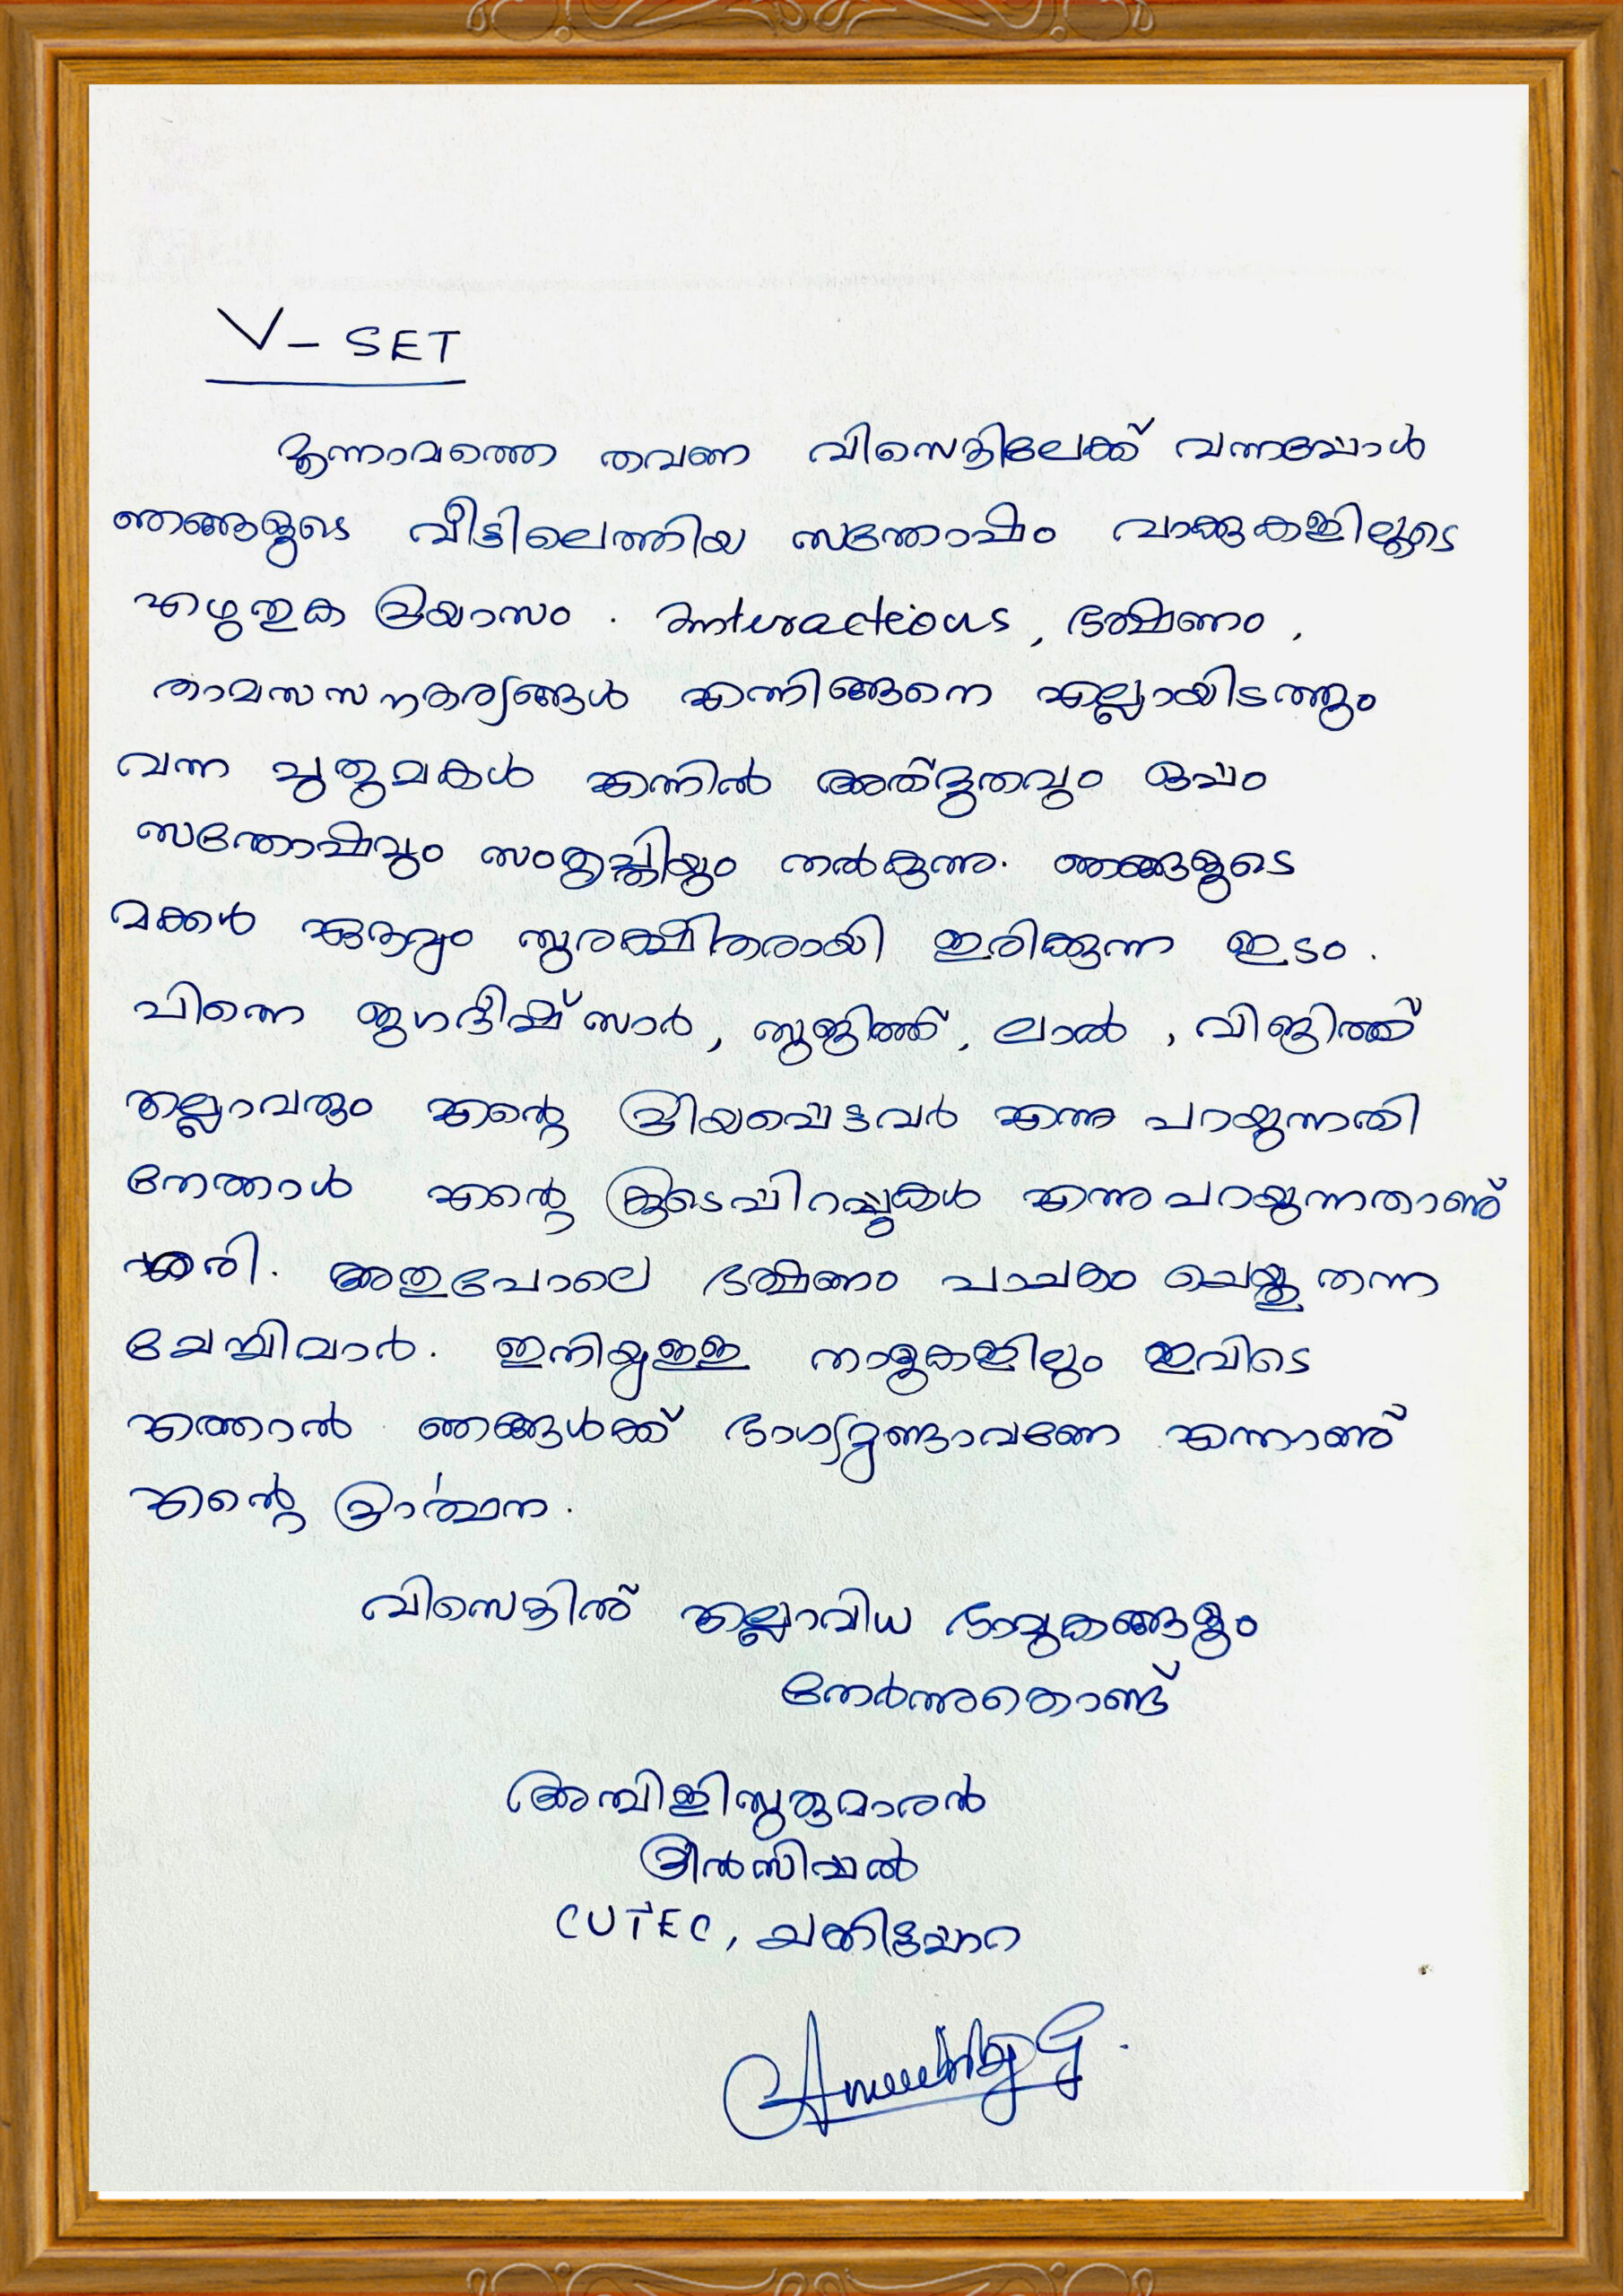 V- SET
മൂന്നാമത്തെ തവണ വിസെറ്റിലേക്ക് വന്നപ്പോൾ
ഞങ്ങളുടെ വീട്ടിലെത്തിയ സന്തോഷം വാക്കുകളിലൂടെ
എഴുതുക പ്രയാസം. Interactions, ഭക്ഷണം,
താമസസൗകര്യങ്ങൾ എന്നിങ്ങനെ എല്ലായിടത്തും
വന്ന പുതുമകൾ എന്നിൽ അത്ഭുതവും ഒപ്പം
സന്തോഷവും സംതൃപ്തിയും നൽകുന്നു. ഞങ്ങളുടെ
മക്കൾ ഏറ്റവും സുരക്ഷിതരായി ഇരിക്കുന്ന ഇടം.
പിന്നെ ജഗദീഷ് സാർ, സുജിത്ത്, ലാൽ, വിജിത്ത്
എല്ലാവരും എന്റെ പ്രിയപ്പെട്ടവർ എന്നു പറയുന്നതി
നേക്കാൾ എന്റെ കൂടെപ്പിറപ്പുകൾ എന്നു പറയുന്നതാണ്
ശരി. അതുപോലെ ഭക്ഷണം പാചകം ചെയ്തു തന്ന
ചേച്ചിമാർ. ഇനിയുള്ള നാളുകളിലും ഇവിടെ
എത്താൻ ഞങ്ങൾക്ക് ഭാഗ്യമുണ്ടാവണേ എന്നാണ്
എന്റെ പ്രാർത്ഥന.
വിസെറ്റിന് എല്ലാവിധ ഭാവുകങ്ങളും
നേർന്നുകൊണ്ട്
അമ്പിളിസുകുമാരൻ
പ്രിൻസിപ്പൽ
CUTEC, ചക്കിട്ടപ്പാറ